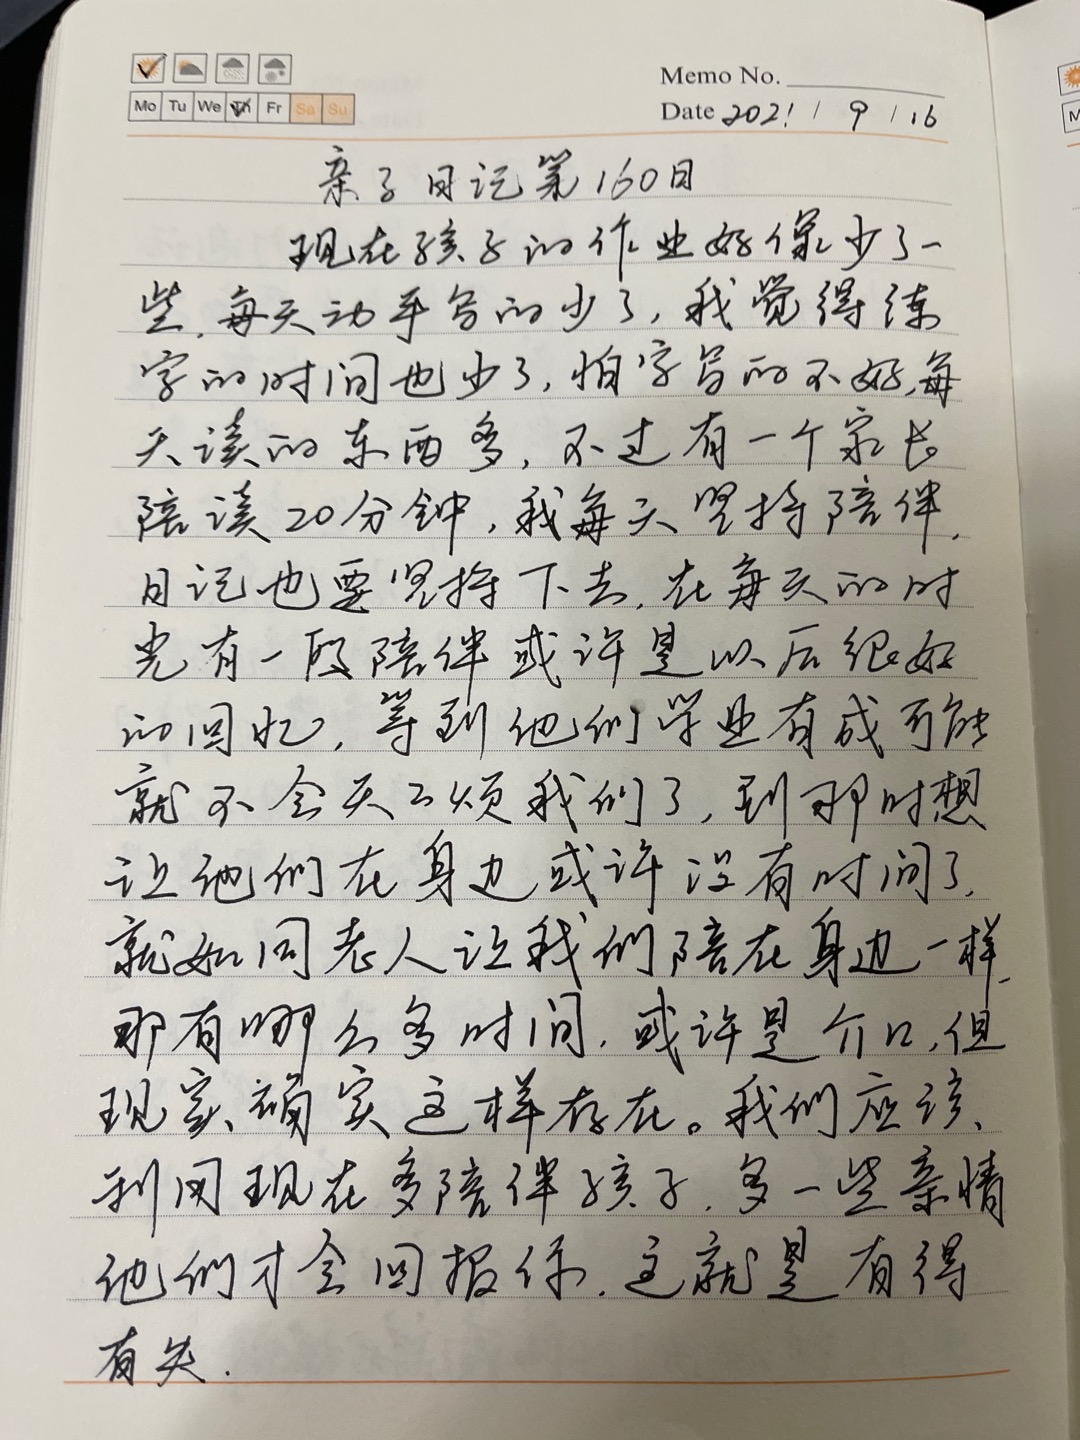 Memo No.
Mo Tu We Th Fr Sa Su
Date 2021 / 9 / 16
亲子日记第160日
现在孩子的作业好像少了一
些,每天动手写的少了,我觉得练
字的时间也少了,怕字写的不好,每
天读的东西多,不过有一个家长
陪读20分钟,我每天坚持陪伴,
日记也要坚持下去,在每天的时
光有一段陪伴或许是以后很好
的回忆,等到他们学业有成可能
就不会天天烦我们了,到那时想
让他们在身边或许没有时间了,
就如同老人让我们陪在身边一样,
那有哪么多时间,或许是介口,但
现实、确实这样存在。我们应该、
利用现在多陪伴孩子,多一些亲情
他们才会回报你,这就是有得
有失.